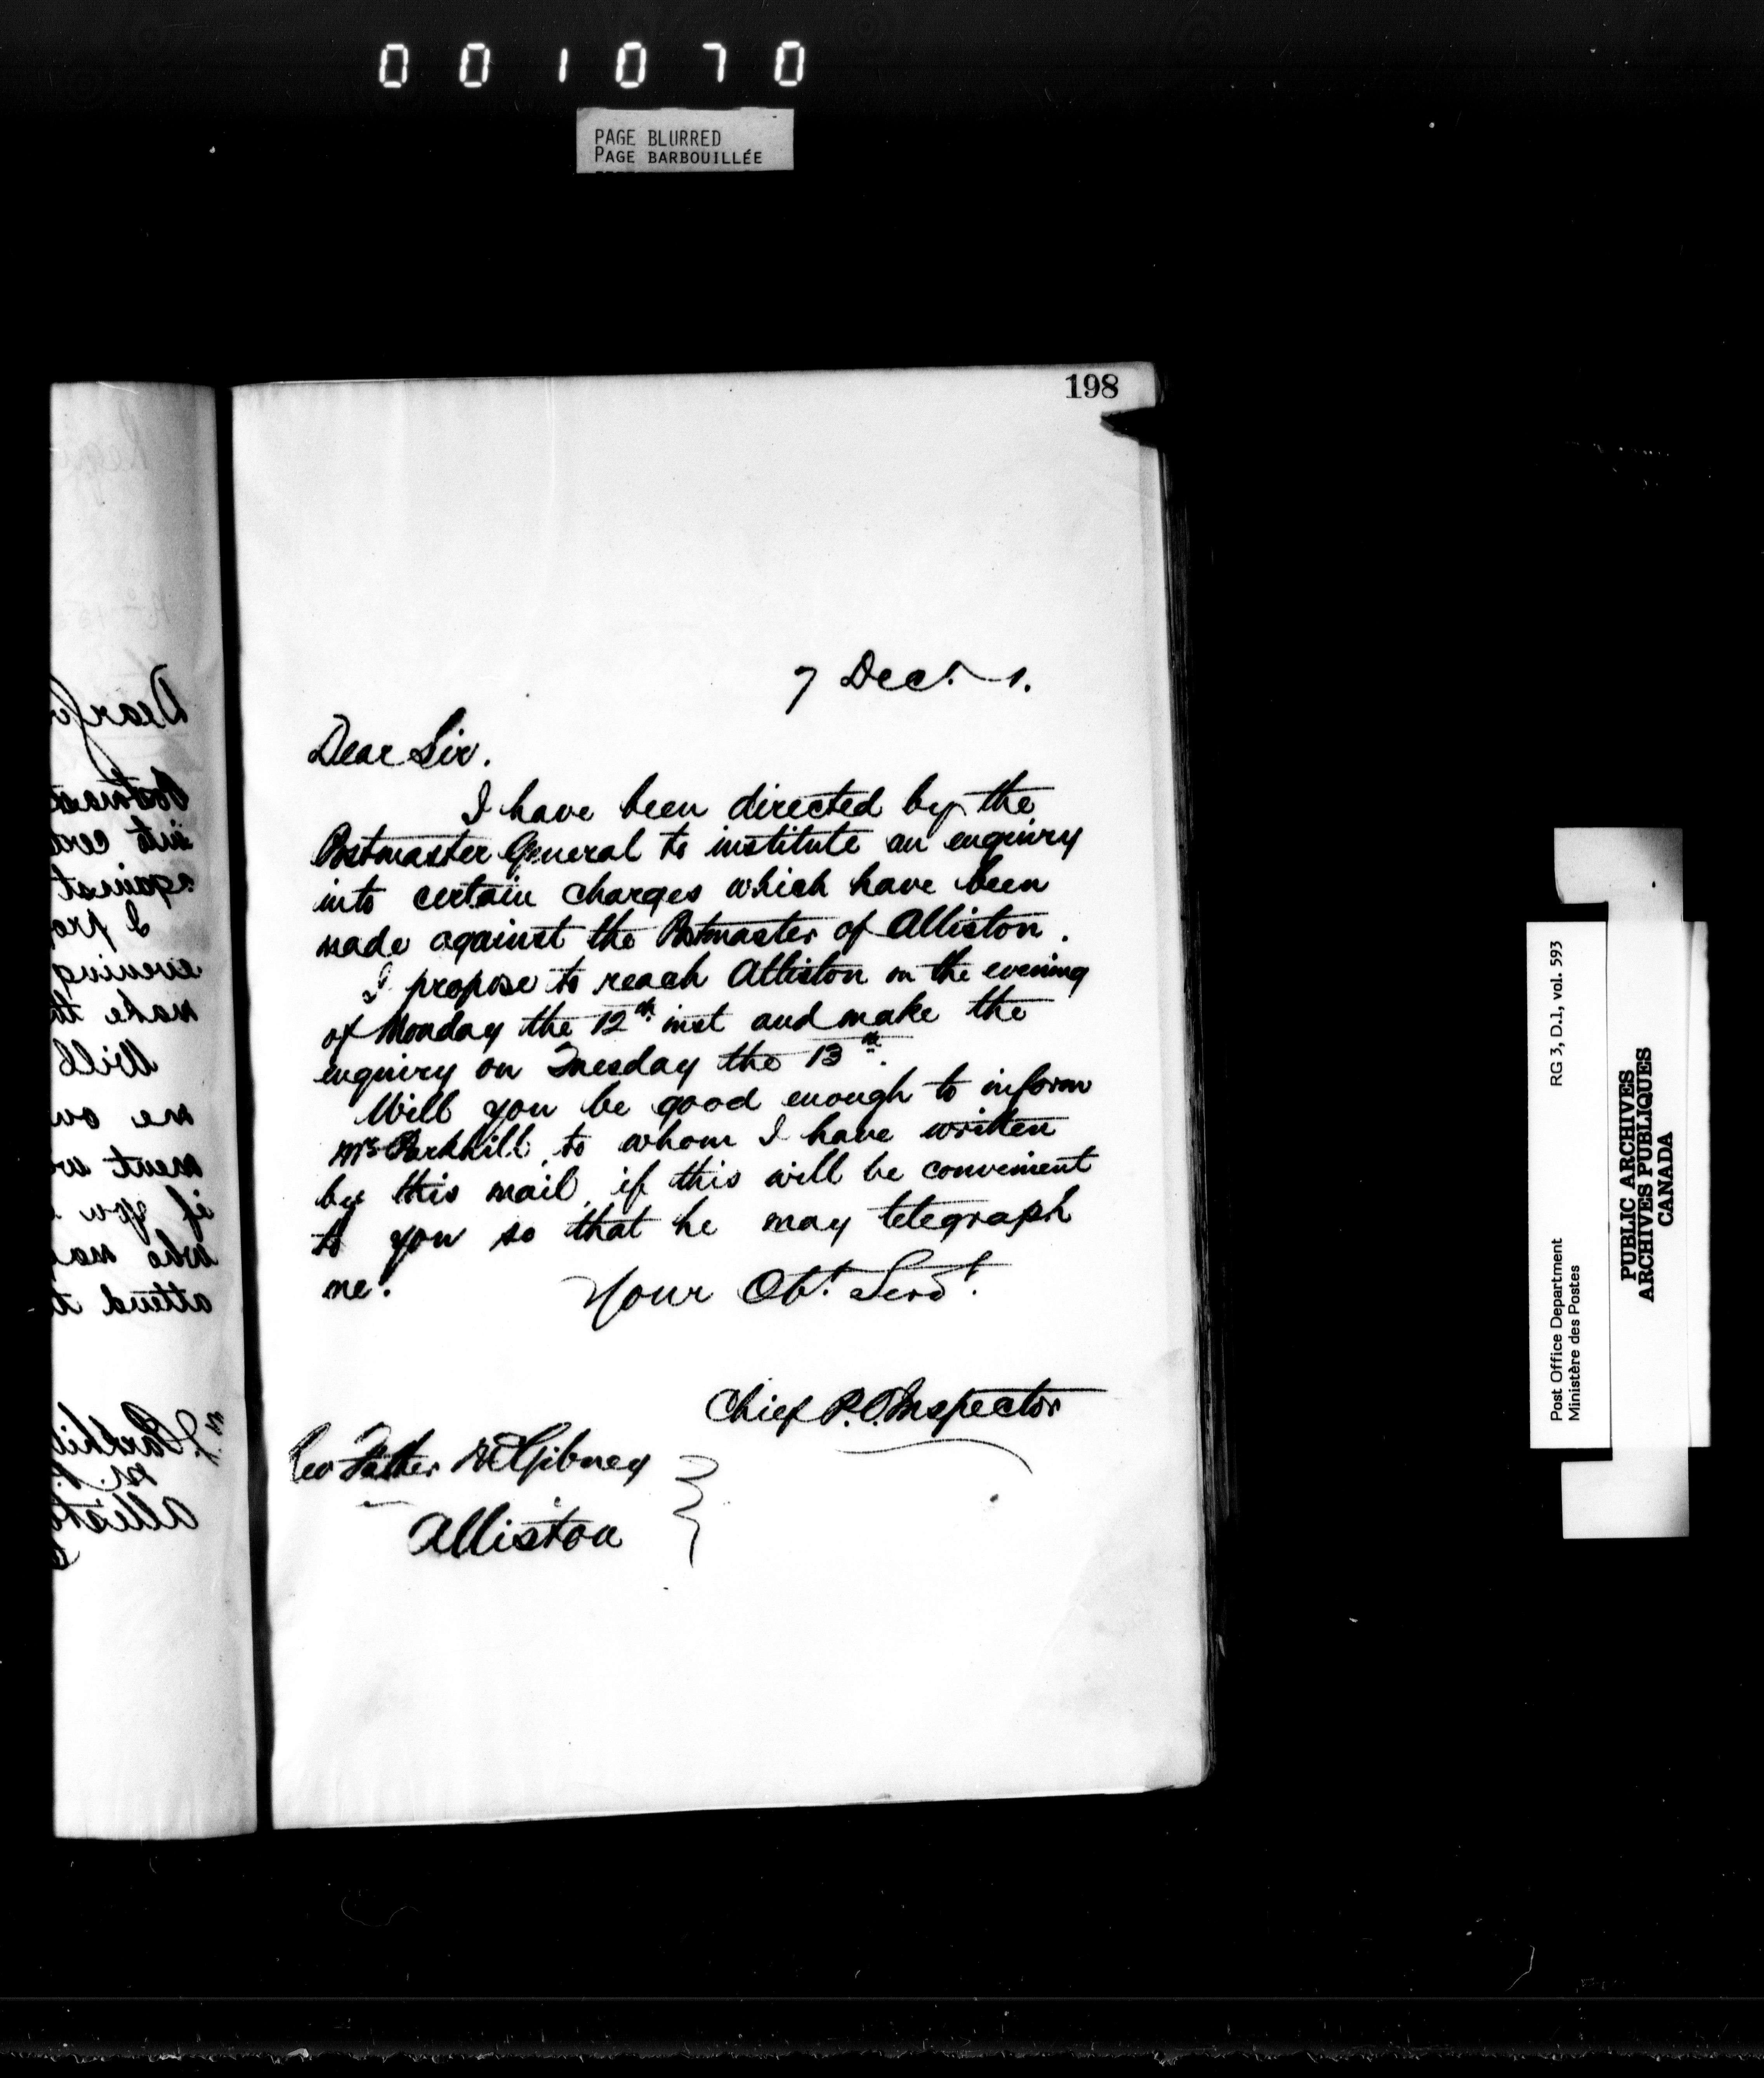 001070
PAGE BLURRED
PAGE BARBOUILLÉE
198
7 Dec. 1.
Dear Sir.
I have been directed by the
Postmaster General to institute an enquiry
into certain charges which have been
made against the Postmaster of Alliston.
I propose to reach Alliston on the evening
of Monday the 12th inst and make the
enquiry on Tuesday the 13th.
Will you be good enough to inform
Mr Parkhill, to whom I have written
by this mail, if this will be convenient
to you so that he may telegraph
me.
Your Obt. Servt.
Chief P.O. Inspector
Rev Father McGibney
Alliston
RG 3, D.1, vol. 593
Post Office Department
Ministère des Postes
PUBLIC ARCHIVES
ARCHIVES PUBLIQUES
CANADA